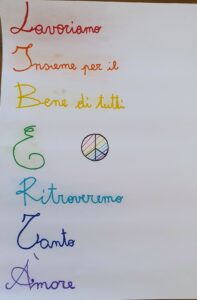 Lavoriamo
Insieme per il
Bene di tutti
E
Ritroveremo
Tanto
À more